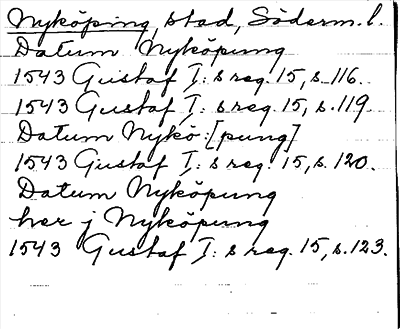 Nyköping, stad, Söderm. l.
Datum Nyköpung
1543 Gustaf I: s reg. 15, s. 116.
1543 Gustaf I: s reg. 15, s. 119
Datum Nykö: [pung]
1543 Gustaf I: s reg. 15, s. 120.
Datum Nyköpung
her j Nyköpung
1543 Gustaf I: s reg. 15, s. 123.